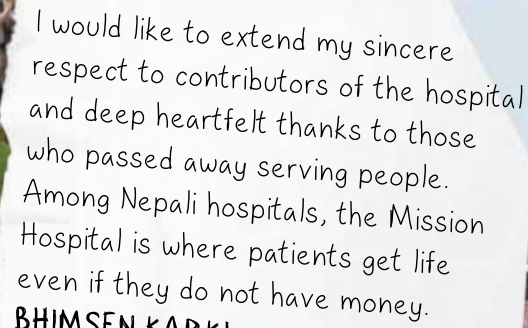 I would like to extend my sincere
respect to contributors of the hospital
and deep heartfelt thanks to those
who passed away serving people.
Among Nepali hospitals, the Mission
Hospital is where patients get life
even if they do not have money.
BHIMSEN KARKI